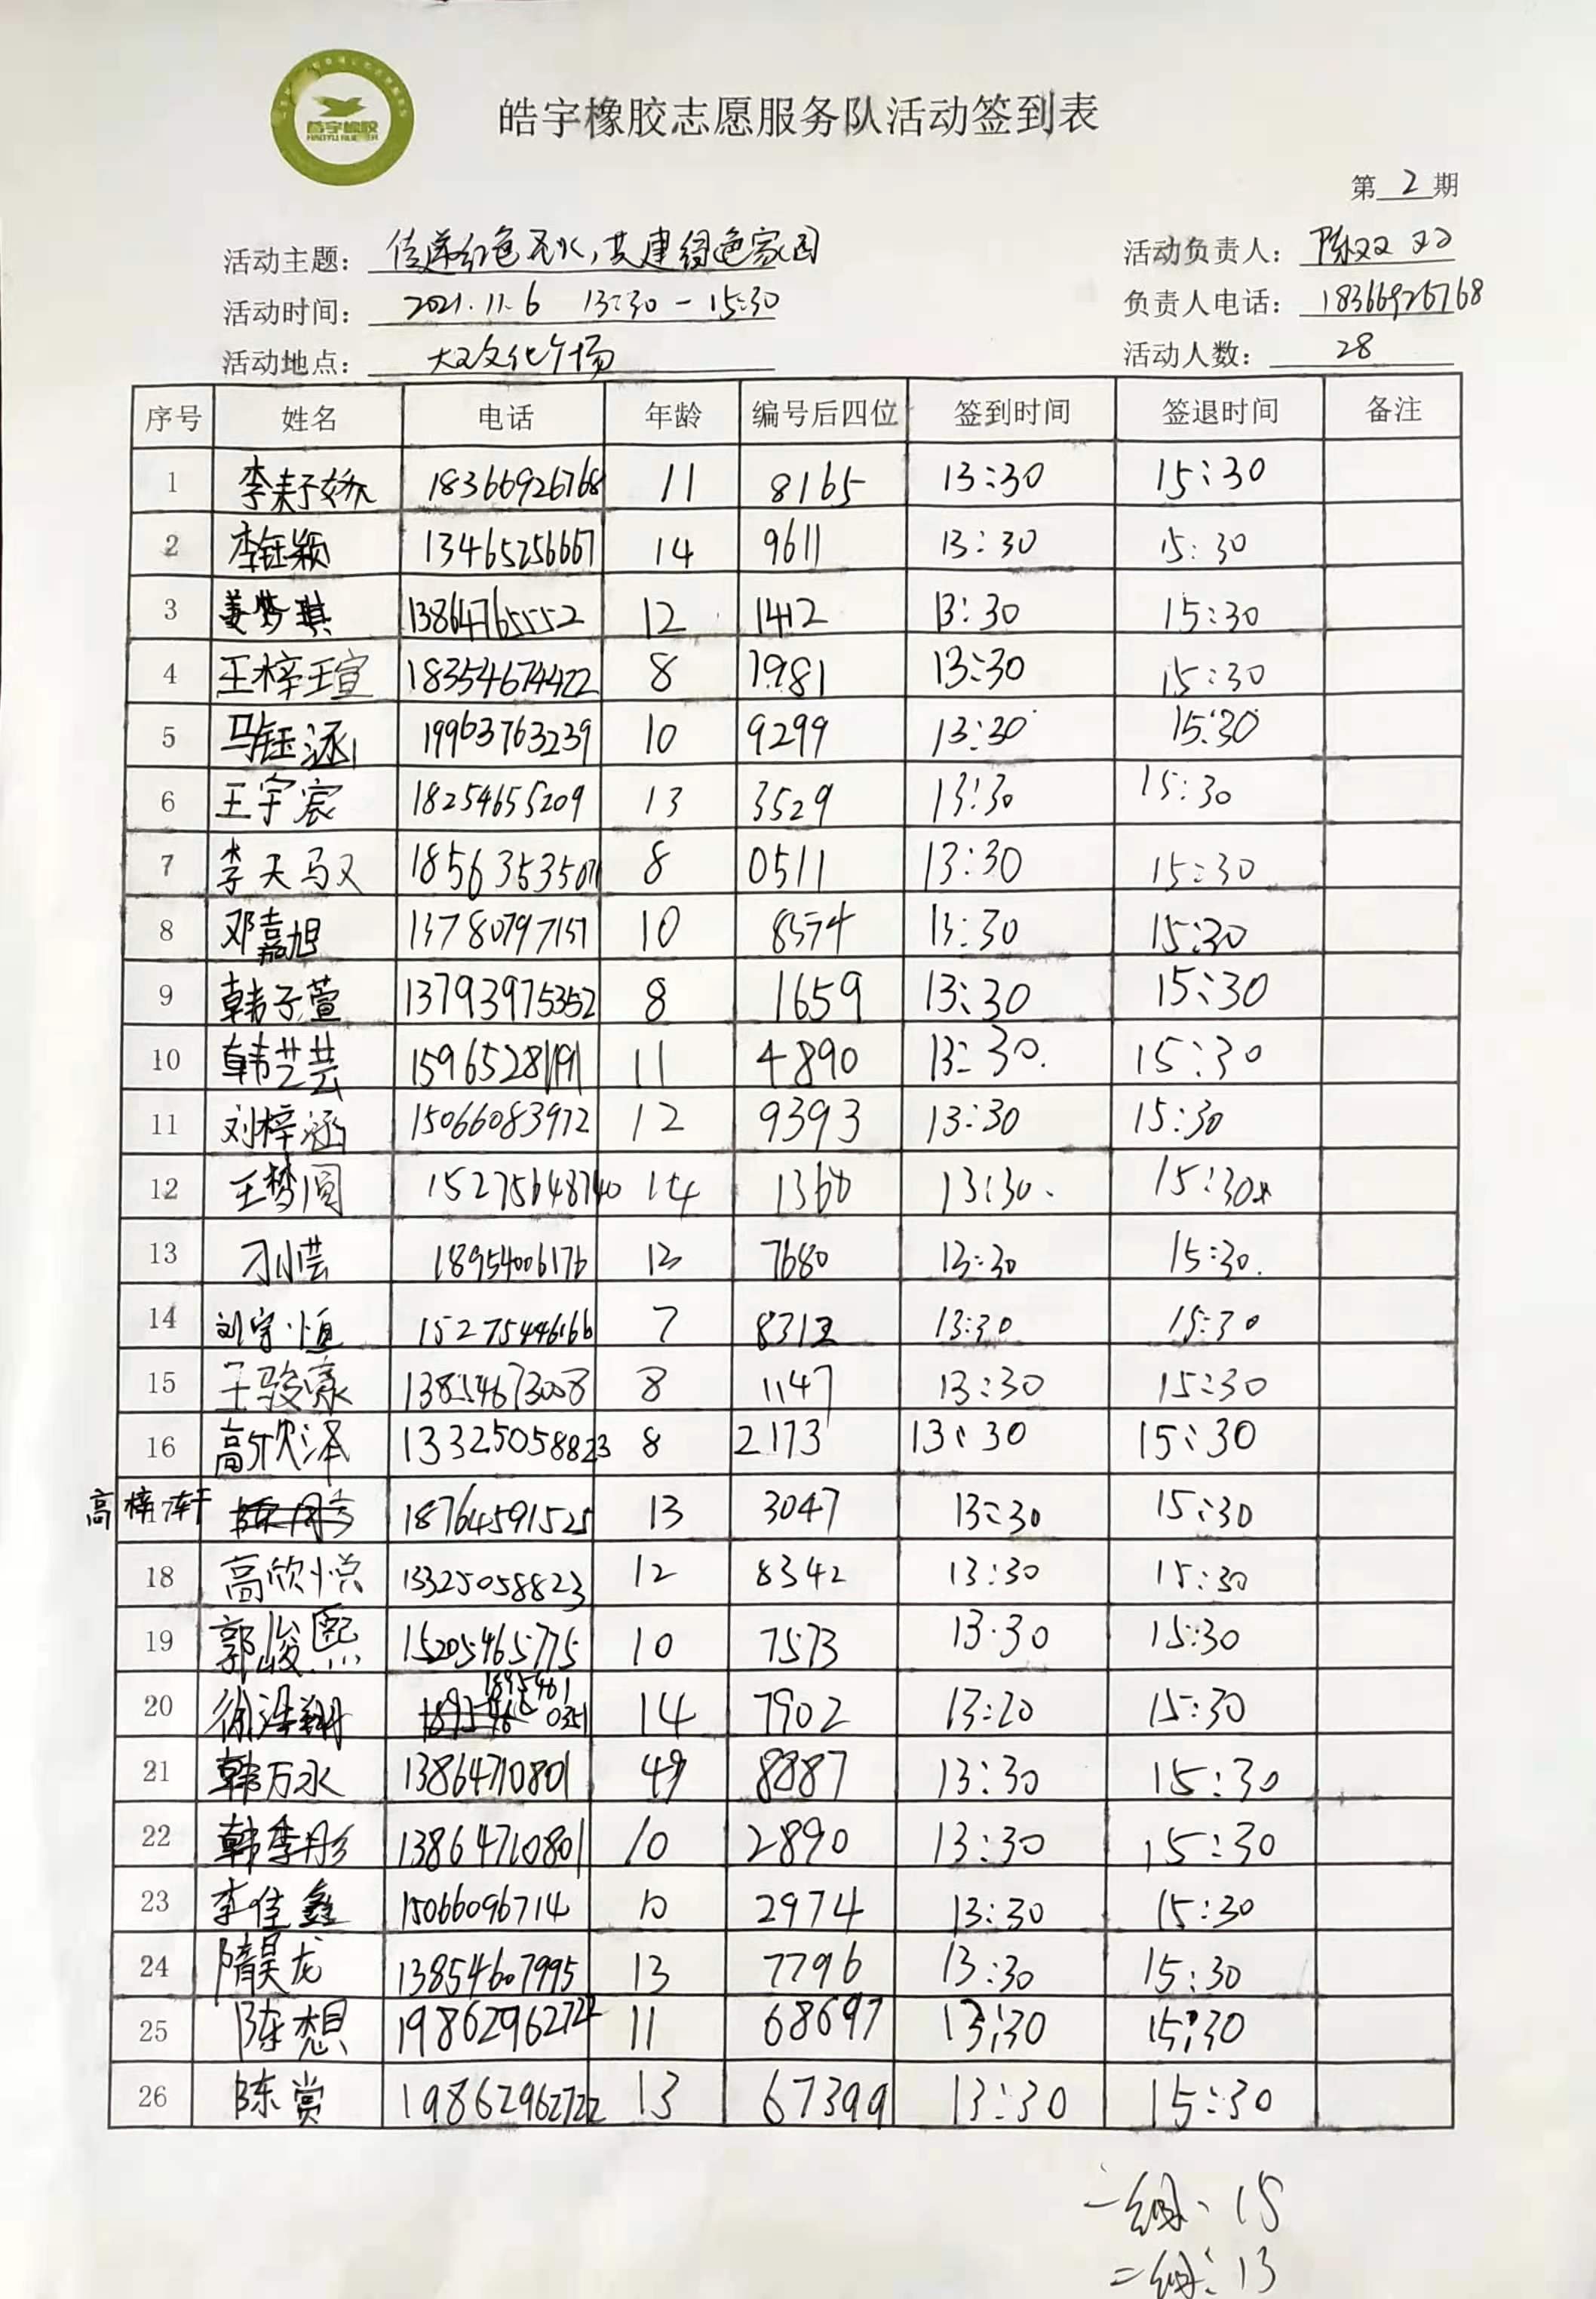 皓宇橡胶
皓宇橡胶志愿服务队活动签到表
第 2 期
活动主题： 传递红色圣火，共建绿色家园
活动负责人： 陈双双
活动时间： 2021.11.6 13:30-15:30
负责人电话： 18366926768
活动地点： 大王文化广场
活动人数： 28
序号 姓名 电话 年龄 编号后四位 签到时间 签退时间 备注
1 李耔娇 18366926768 11 8165 13:30 15:30
2 李钰颖 13465256667 14 9611 13:30 15:30
3 姜梦琪 13864765552 12 1412 13:30 15:30
4 王梓瑄 18354674422 8 1981 13:30 15:30
5 马钰涵 19963763239 10 9299 13:30 15:30
6 王宇宸 18254655209 13 3529 13:30 15:30
7 李天驭 8 0511 13:30 15:30
8 邓嘉旭 13780797157 10 8574 13:30 15:30
9 韩子萱 13793975352 8 1659 13:30 15:30
10 韩艺芸 15965281191 11 4890 13:30 15:30
11 刘梓涵 15066083972 12 9393 13:30 15:30
12 王梦圆 15275648740 14 1360 13:30 15:30
13 刁小芸 18954006176 13 7680 13:30 15:30
14 刘宇恒 15275446166 7 8312 13:30 15:30
15 王骏豪 13854673008 8 1147 13:30 15:30
16 高欣泽 13325058823 8 2173 13:30 15:30
高梓轩 18764591525 13 3047 13:30 15:30
18 高欣悦 13325058823 12 8342 13:30 15:30
19 郭峻熙 15205465775 10 7573 13:30 15:30
20 徐浩翔 18954610351 14 7902 13:20 15:30
21 韩万水 13864710801 49 8887 13:30 15:30
22 韩季彤 13864710801 10 2890 13:30 15:30
23 李佳鑫 15066096714 10 2974 13:30 15:30
24 隋昊龙 13854607995 13 7796 13:30 15:30
25 陈想 19862962722 11 68697 13:30 15:30
26 陈赏 19862962722 13 67399 13:30 15:30
一组：15
二组：13